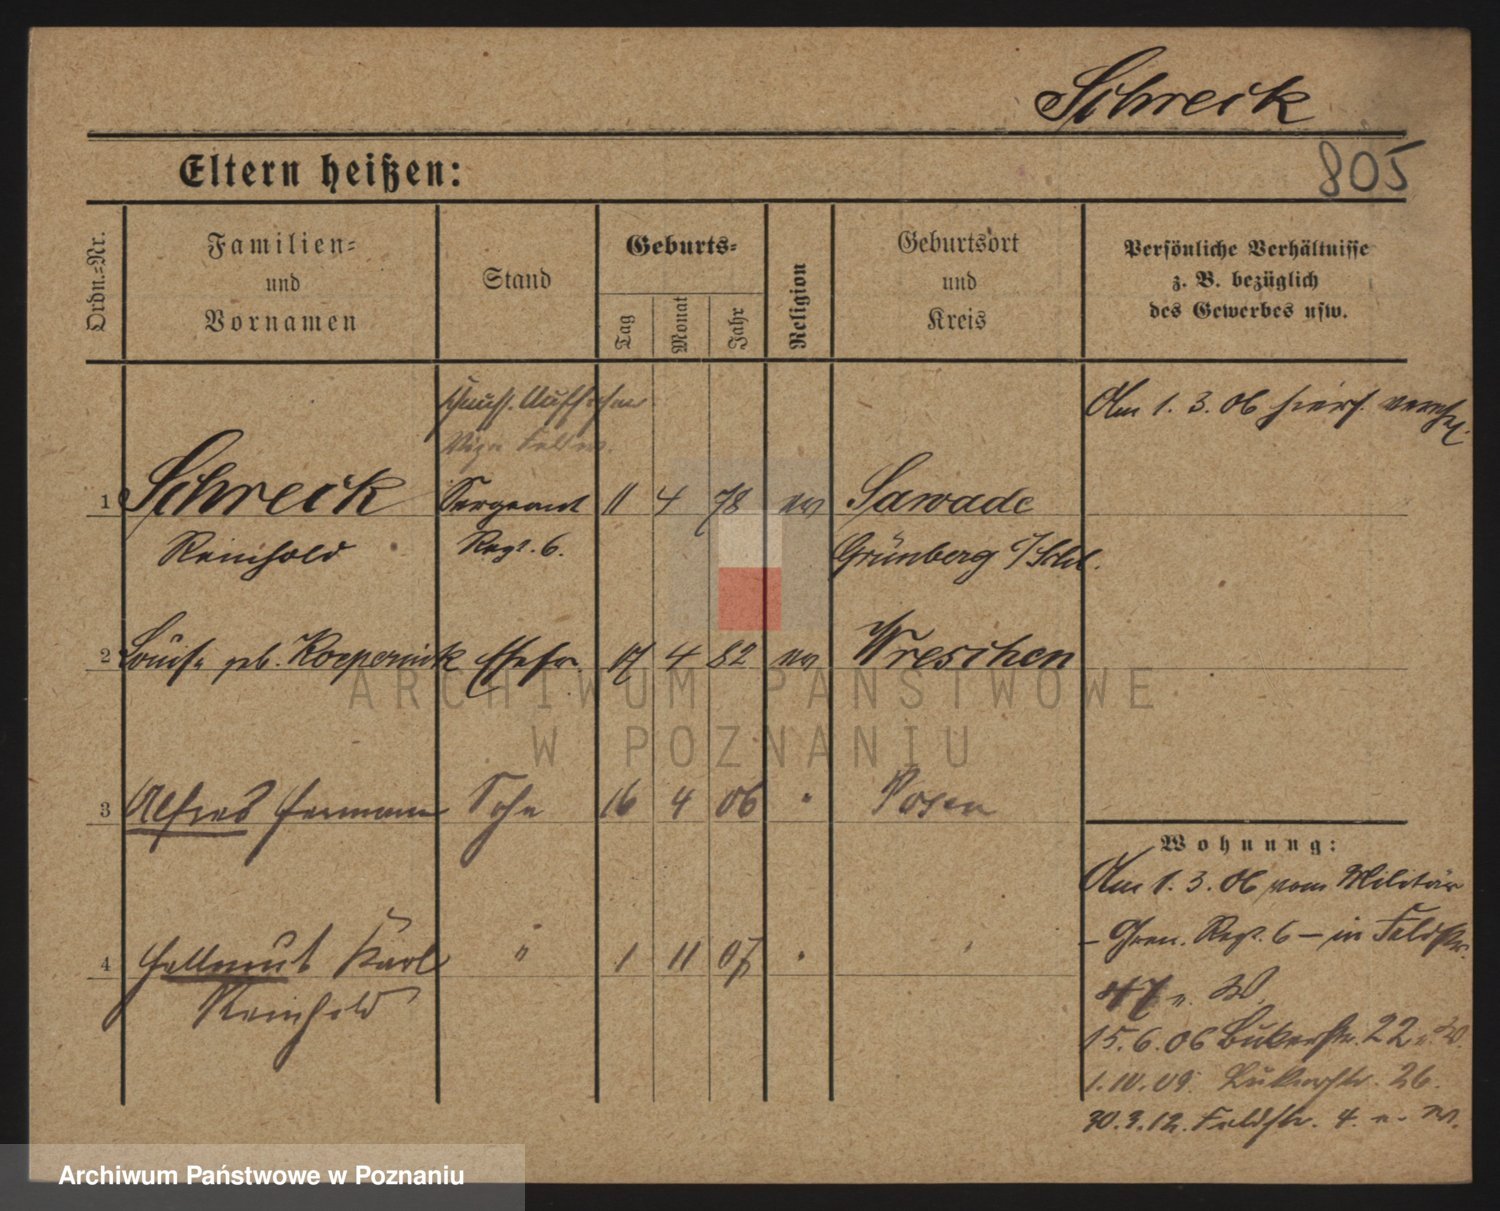 Schreck
805
Eltern heißen:
Ordn.=Nr.
Familien=
und
Vornamen
Stand
Geburts=
Tag
Monat
Jahr
Religion
Geburtsort
und
Kreis
Persönliche Verhältnisse
z. B. bezüglich
des Gewerbes usw.
Am 1. 3. 06 hiers. verehel.
1 Schreck Sergeant 11 4 78 ev Sawade
Reinhold Regt. 6. Grünberg i/Schl.
2 Louise geb. Koepernick Ehefr. 17 4 82 ev Wreschen
3 Alfred Hermann Sohn 16 4 06 " Posen
4 Hellmut Karl " 1 11 07 "
Reinhold
Wohnung:
Am 1. 3. 06 vom Militär
- Gren. Regt. 6 - in Feldstr.
15. 6. 06 22
1. 10. 09. 26.
30. 3. 12. Feldstr. 4.
ARCHIWUM PAŃSTWOWE
W POZNANIU
Archiwum Państwowe w Poznaniu